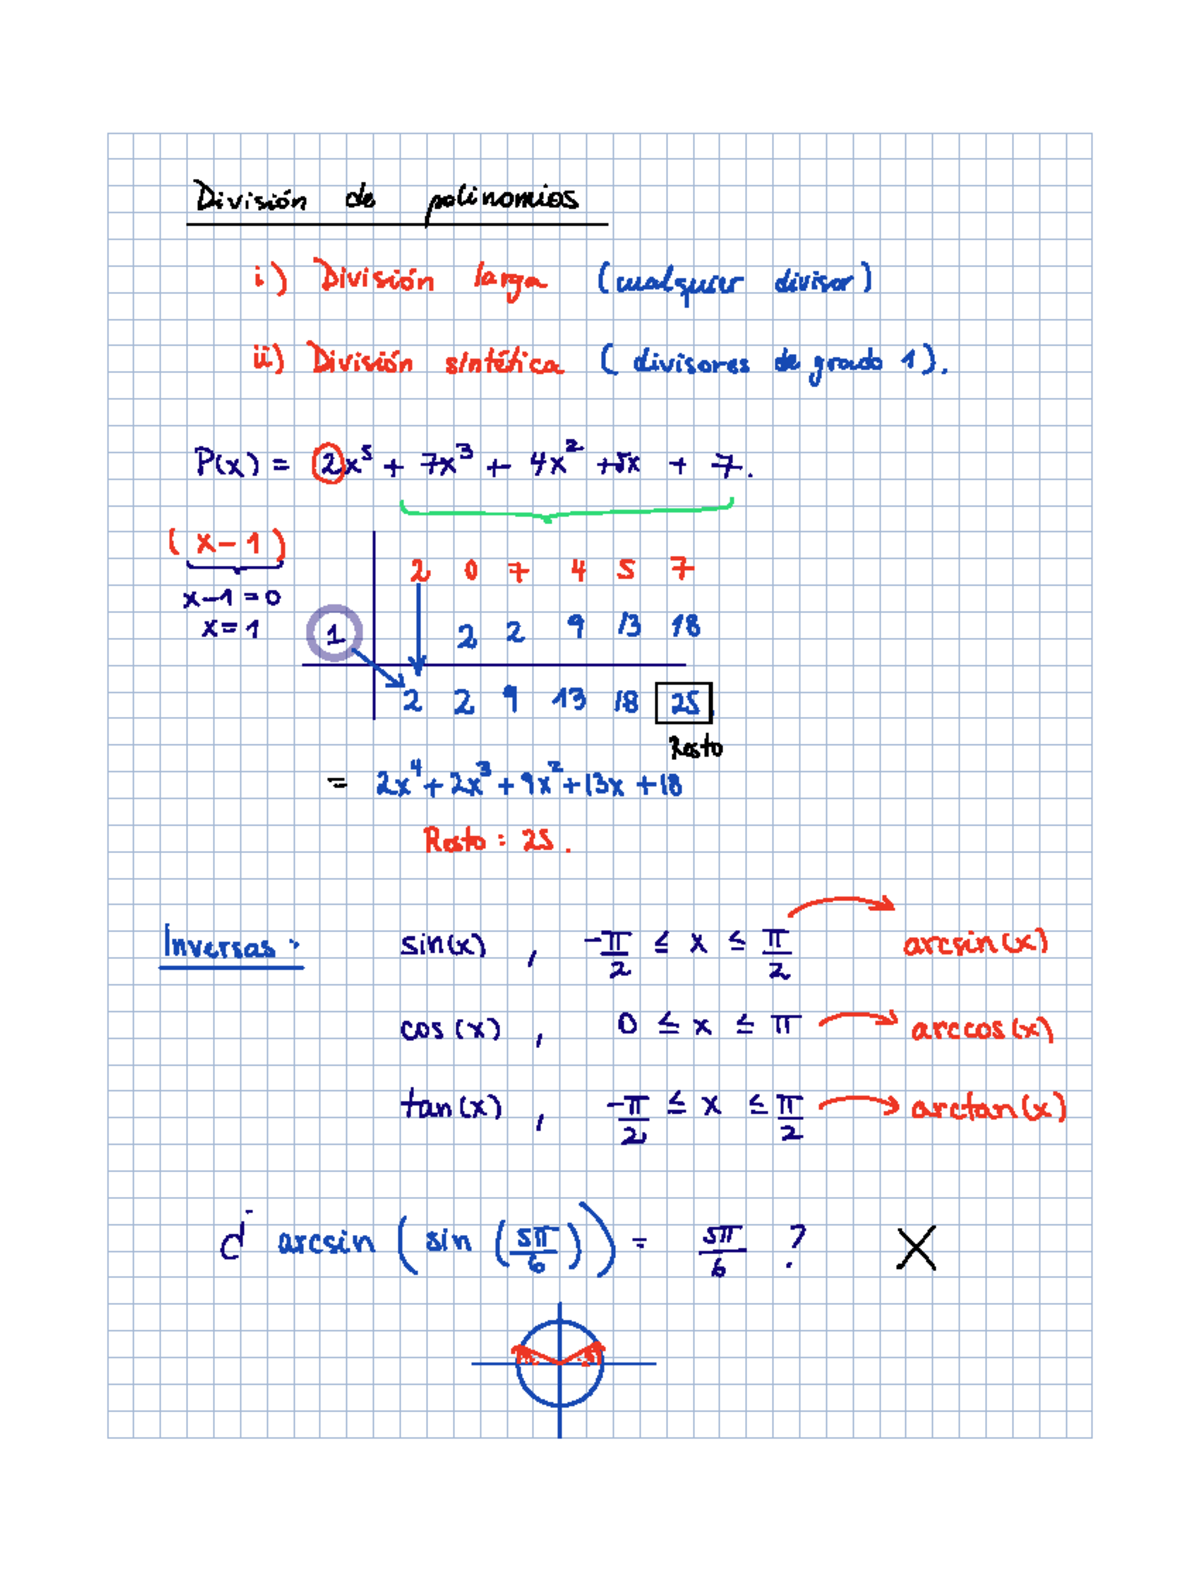 División de polinomios
i) División larga (cualquier divisor)
ii) División sintética (divisores de grado 1).
P(x) = 2x⁵ + 7x³ + 4x² + 5x + 7.
(x-1)
x-1=0
x=1
2 0 7 4 5 7
1 2 2 9 13 18
2 2 9 13 18 25
Resto
= 2x⁴+2x³+9x²+13x+18
Resto: 25.
Inversas: sin(x), -π/2 ≤ x ≤ π/2 arcsin(x)
cos(x), 0 ≤ x ≤ π arccos(x)
tan(x), -π/2 ≤ x ≤ π/2 arctan(x)
¿ arcsin(sin(5π/6)) = 5π/6 ? X